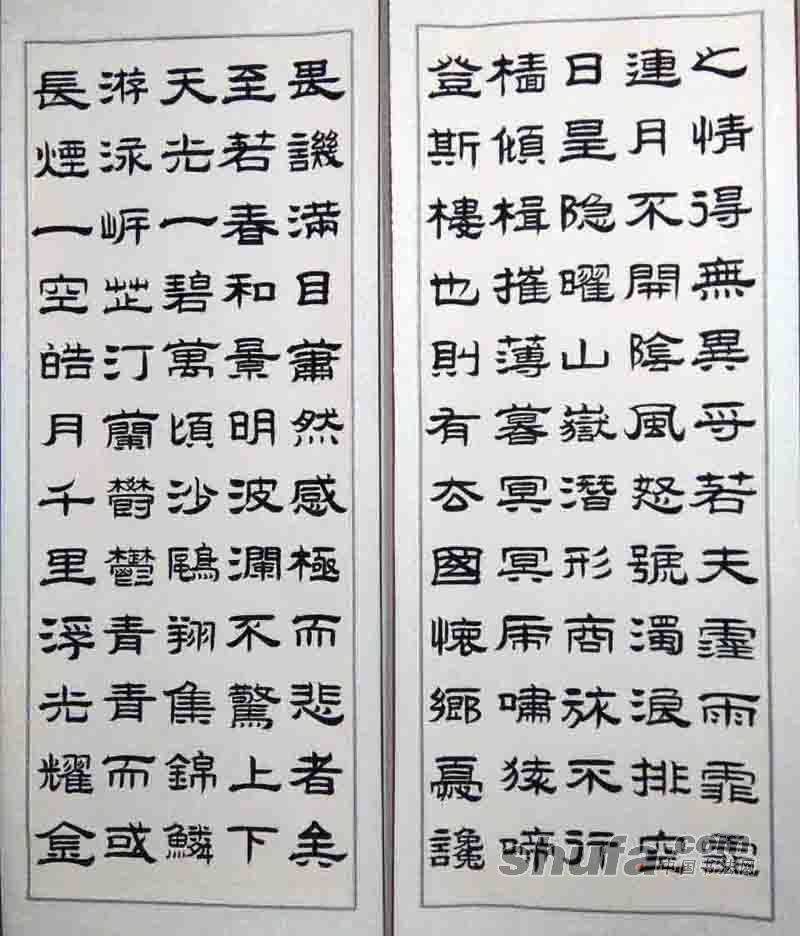 之情得無異乎若夫霪雨霏霏
連月不開陰風怒號濁浪排空
日星隐曜山嶽潛形商旅不行
檣傾楫摧薄暮冥冥虎嘯猿啼
登斯樓也則有去國懷鄉憂讒
畏譏滿目蕭然感極而悲者矣
至若春和景明波瀾不驚上下
天光一碧萬頃沙鷗翔集錦鱗
游泳岸芷汀蘭鬱鬱青青而或
長煙一空皓月千里浮光耀金
shufa.com
中国书法网